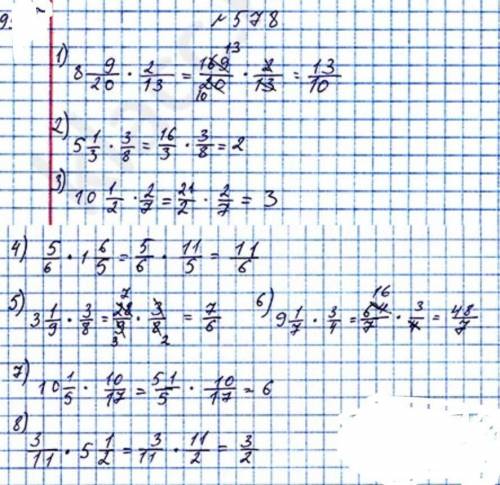 9.
№ 578
1) 8 9/20 · 2/13 = 169/20 · 2/13 = 13/10
13
10
2) 5 1/3 · 3/8 = 16/3 · 3/8 = 2
3) 10 1/2 · 2/7 = 21/2 · 2/7 = 3
4) 5/6 · 1 6/5 = 5/6 · 11/5 = 11/6
5) 3 1/9 · 3/8 = 28/9 · 3/8 = 7/6 6) 9 1/7 · 3/4 = 64/7 · 3/4 = 48/7
7 16
3 2
7) 10 1/5 · 10/17 = 51/5 · 10/17 = 6
8) 3/11 · 5 1/2 = 3/11 · 11/2 = 3/2